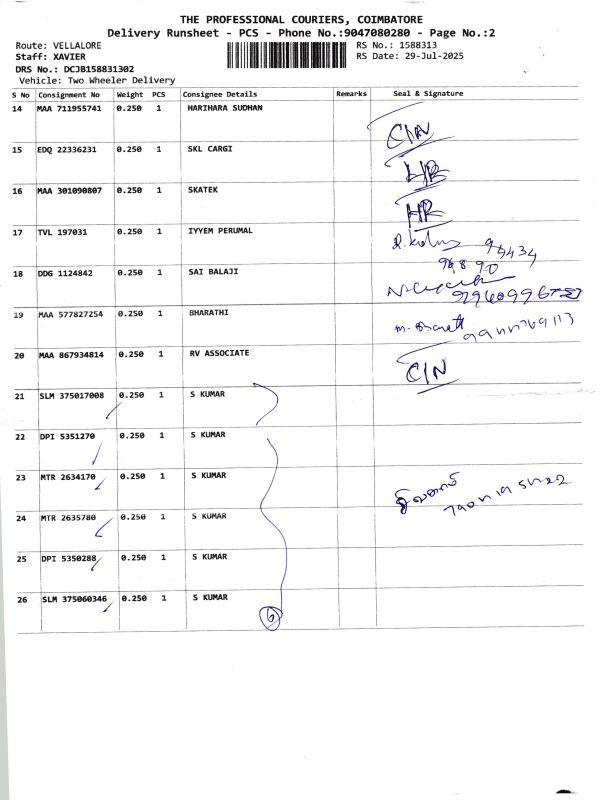 THE PROFESSIONAL COURIERS, COIMBATORE
Delivery Runsheet - PCS - Phone No.:9047080280 - Page No.:2
Route: VELLALORE
Staff: XAVIER
DRS No.: DCJB158831302
Vehicle: Two Wheeler Delivery
RS No.: 1588313
RS Date: 29-Jul-2025
S No Consignment No Weight PCS Consignee Details Remarks Seal & Signature
14 MAA 711955741 0.250 1 HARIHARA SUDHAN C/N
15 EDQ 22336231 0.250 1 SKL CARGI
16 MAA 301090807 0.250 1 SKATEK
17 TVL 197031 0.250 1 IYYEM PERUMAL
18 DDG 1124842 0.250 1 SAI BALAJI
19 MAA 577827254 0.250 1 BHARATHI
20 MAA 867934814 0.250 1 RV ASSOCIATE C/N
21 SLM 375017008 0.250 1 S KUMAR
22 DPI 5351270 0.250 1 S KUMAR
23 MTR 2634170 0.250 1 S KUMAR
24 MTR 2635780 0.250 1 S KUMAR
25 DPI 5350288 0.250 1 S KUMAR
26 SLM 375060346 0.250 1 S KUMAR
6